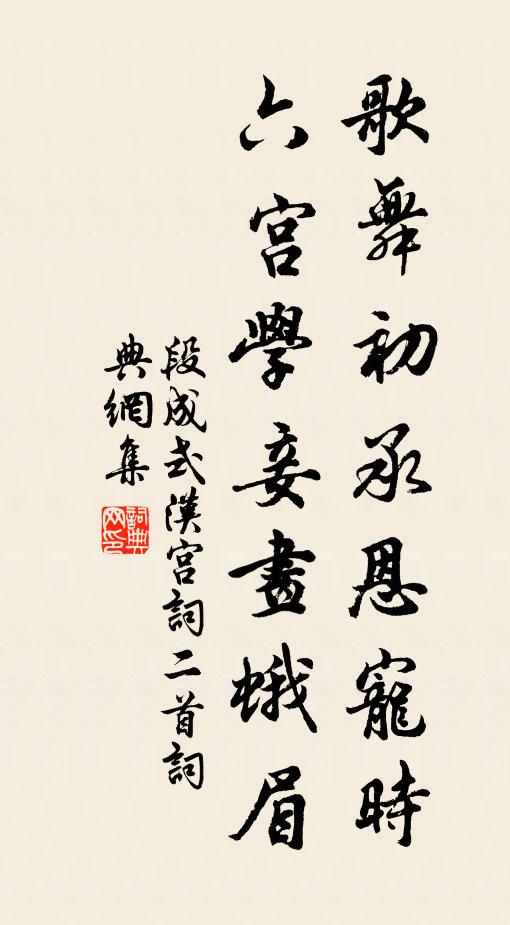 歌舞初承恩寵時
六宮學妾畫蛾眉
段成式漢宮詞二首詞
典網集
詞典
网印